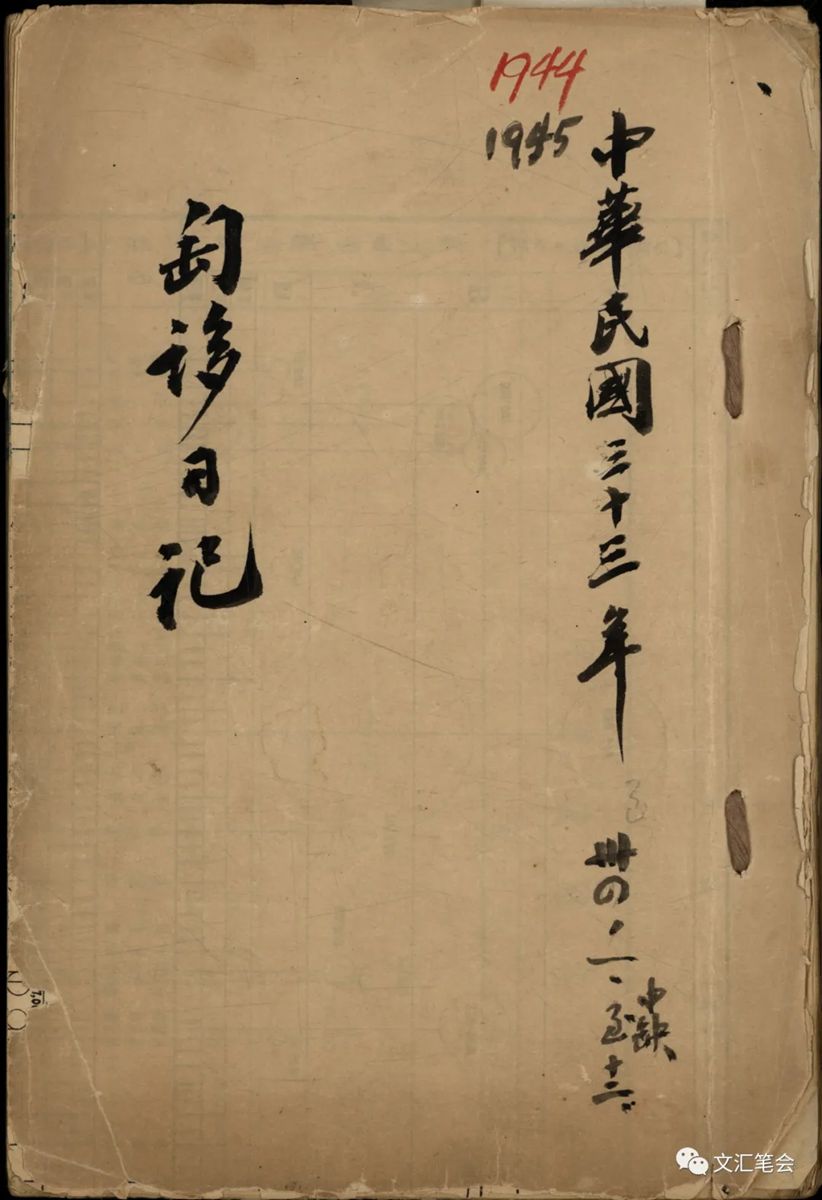 1944
1945
中華民國三十三年
至
卅四、一、至十二、
中缺、
匋誃日記
文汇笔会